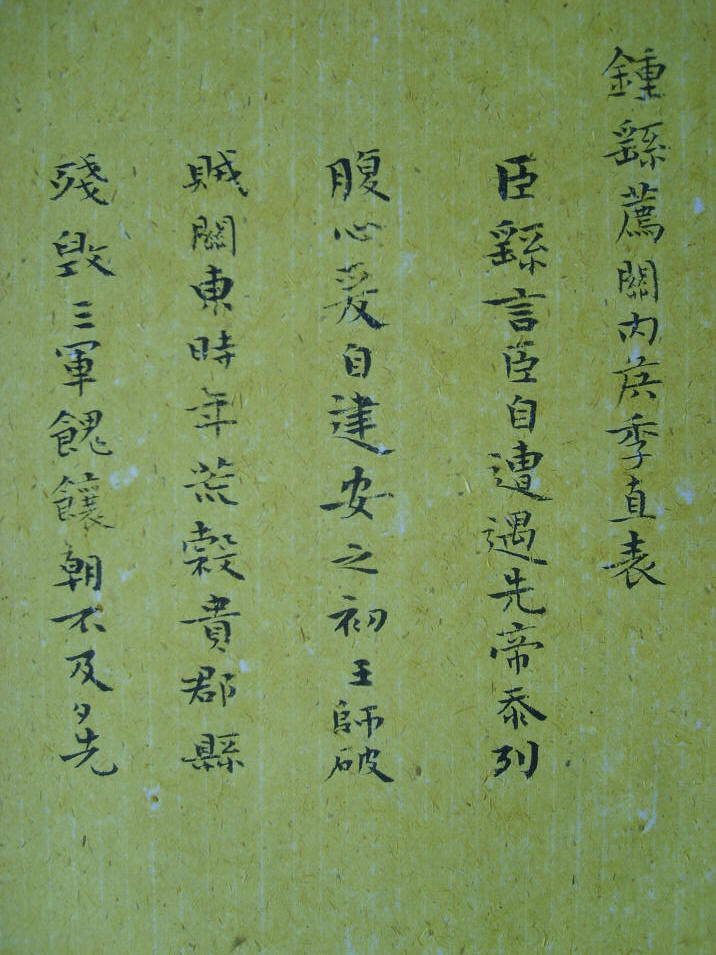 鍾繇薦關內侯季直表
臣繇言臣自遭遇先帝忝列
腹心爰自建安之初王師破
賊關東時年荒穀貴郡縣
殘毀三軍餽饟朝不及夕先